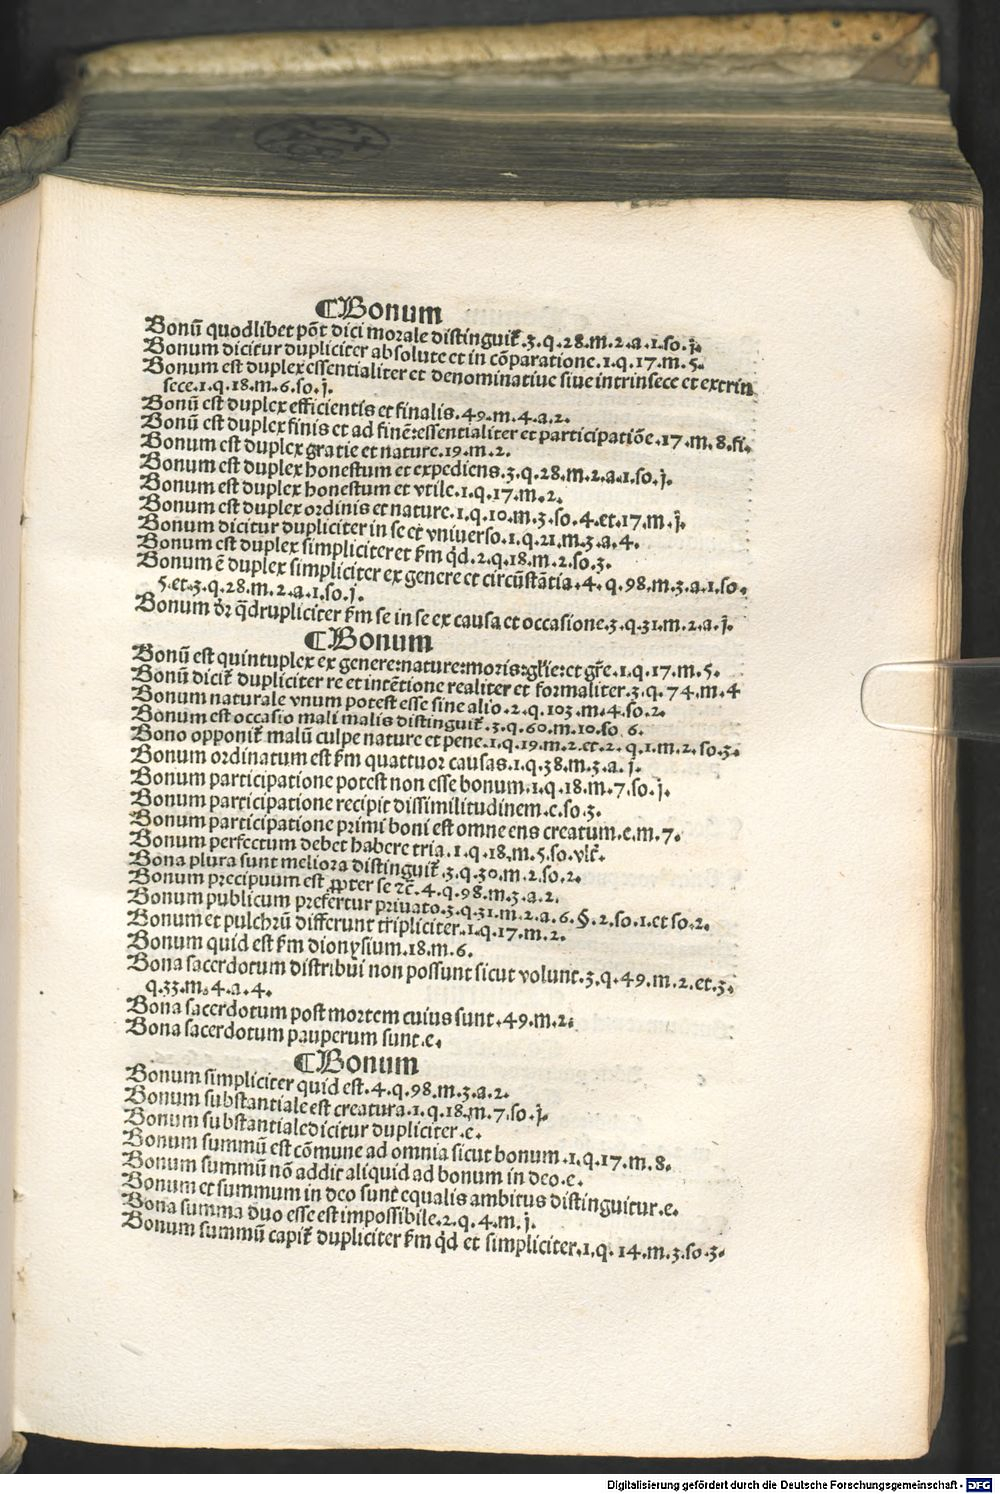 ¶Bonum
Bonū quodlibet pōt dici morale distinguit̄.3.q.28.m.2.a.1.so.j.
Bonum dicitur dupliciter absolute et in cōparatione.1.q.17.m.5.
Bonum est duplex essentialiter et denominatiue siue intrinsece et extrin
sece.1.q.18.m.6.so.j.
Bonū est duplex efficientis et finalis.49.m.4.a.2.
Bonū est duplex finis et ad finē:essentialiter et participatiōe.17.m.8.fi.
Bonum est duplex gratie et nature.19.m.2.
Bonum est duplex honestum et expediens.3.q.28.m.2.a.1.so.j.
Bonum est duplex honestum et vtile.1.q.17.m.2.
Bonum est duplex ordinis et nature.1.q.10.m.3.so.4.et.17.m.j.
Bonum dicitur dupliciter in se et vniuerso.1.q.21.m.3.a.4.
Bonum est duplex simpliciter et ẜm qd̄.2.q.18.m.2.so.3.
Bonum ē duplex simpliciter ex genere et circūstātia.4.q.98.m.3.a.1.so.
5.et.3.q.28.m.2.a.1.so.j.
Bonum dr̄ q̄drupliciter ẜm se in se ex causa et occasione.3.q.31.m.2.a.j.
¶Bonum
Bonū est quintuplex ex genere:nature:moris:gl̄ie:et gr̄e.1.q.17.m.5.
Bonū dicit̄ dupliciter re et intētione realiter et formaliter.3.q.74.m.4
Bonum naturale vnum potest esse sine alio.2.q.103.m.4.so.2.
Bonum est occasio mali malis distinguit̄.3.q.60.m.10.so 6.
Bono opponit̄ malū culpe nature et pene.1.q.19.m.2.et.2.q.1.m.2.so.3.
Bonum ordinatum est ẜm quattuor causas.1.q.38.m.3.a.j.
Bonum participatione potest non esse bonum.1.q.18.m.7.so.j.
Bonum participatione recipit dissimilitudinem.e.so.3.
Bonum participatione primi boni est omne ens creatum.e.m.7.
Bonum perfectum debet habere tria.1.q.18.m.5.so.vlt̄.
Bona plura sunt meliora distinguit̄.3.q.30.m.2.so.2.
Bonum precipuum est ꝓpter se ⁊c̄.4.q.98.m.3.a.2.
Bonum publicum prefertur priuato.3.q.31.m.2.a.6.§.2.so.1.et so.2.
Bonum et pulchrū differunt tripliciter.1.q.17.m.2.
Bonum quid est ẜm dionysium.18.m.6.
Bona sacerdotum distribui non possunt sicut volunt.3.q.49.m.2.et.3.
q.33.m.4.a.4.
Bona sacerdotum post mortem cuius sunt.49.m.2.
Bona sacerdotum pauperum sunt.e.
¶Bonum
Bonum simpliciter quid est.4.q.98.m.3.a.2.
Bonum substantiale est creatura.1.q.18.m.7.so.j.
Bonum substantiale dicitur dupliciter.e.
Bonum summū est cōmune ad omnia sicut bonum.1.q.17.m.8.
Bonum summū nō addit aliquid ad bonum in deo.e.
Bonum et summum in deo sunt equalis ambitus distinguitur.e.
Bona summa duo esse est impossibile.2.q.4.m.j.
Bonum summū capit̄ dupliciter ẜm qd̄ et simpliciter.1.q.14.m.3.so.3.
Digitalisierung gefördert durch die Deutsche Forschungsgemeinschaft - DFG